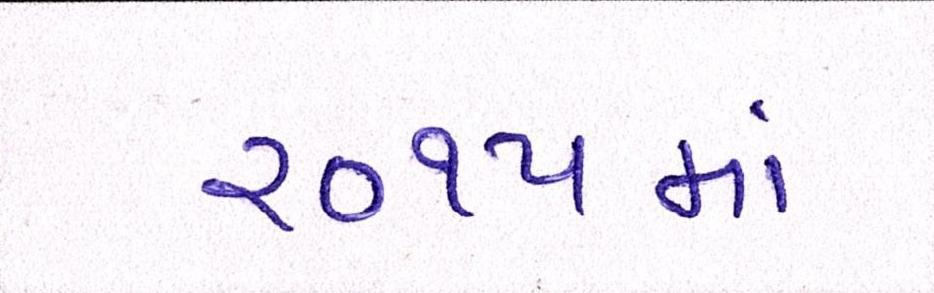 ૨૦૧૫માં